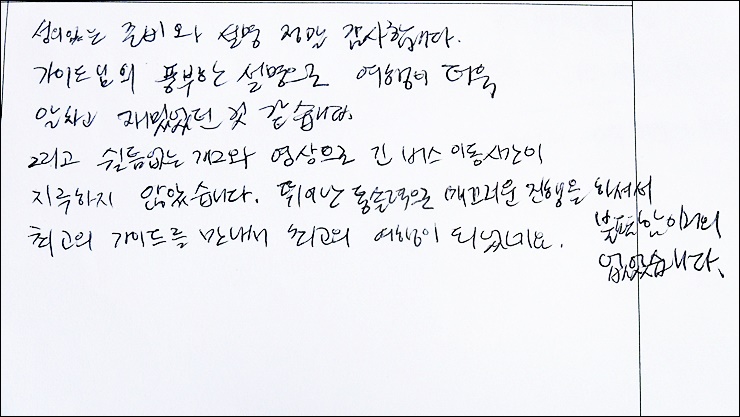 성의있는 준비와 설명 정말 감사합니다.
가이드님의 풍부한 설명으로 여행이 더욱
알차고 재밌었던 것 같습니다.
그리고 쉴틈없는 개그와 영상으로 긴 버스 이동시간이
지루하지 않았습니다. 뛰어난 통솔력으로 매끄러운 진행을 하셔서
불편함이 거의
없었습니다.
최고의 가이드를 만나서 최고의 여행이 되었지요.